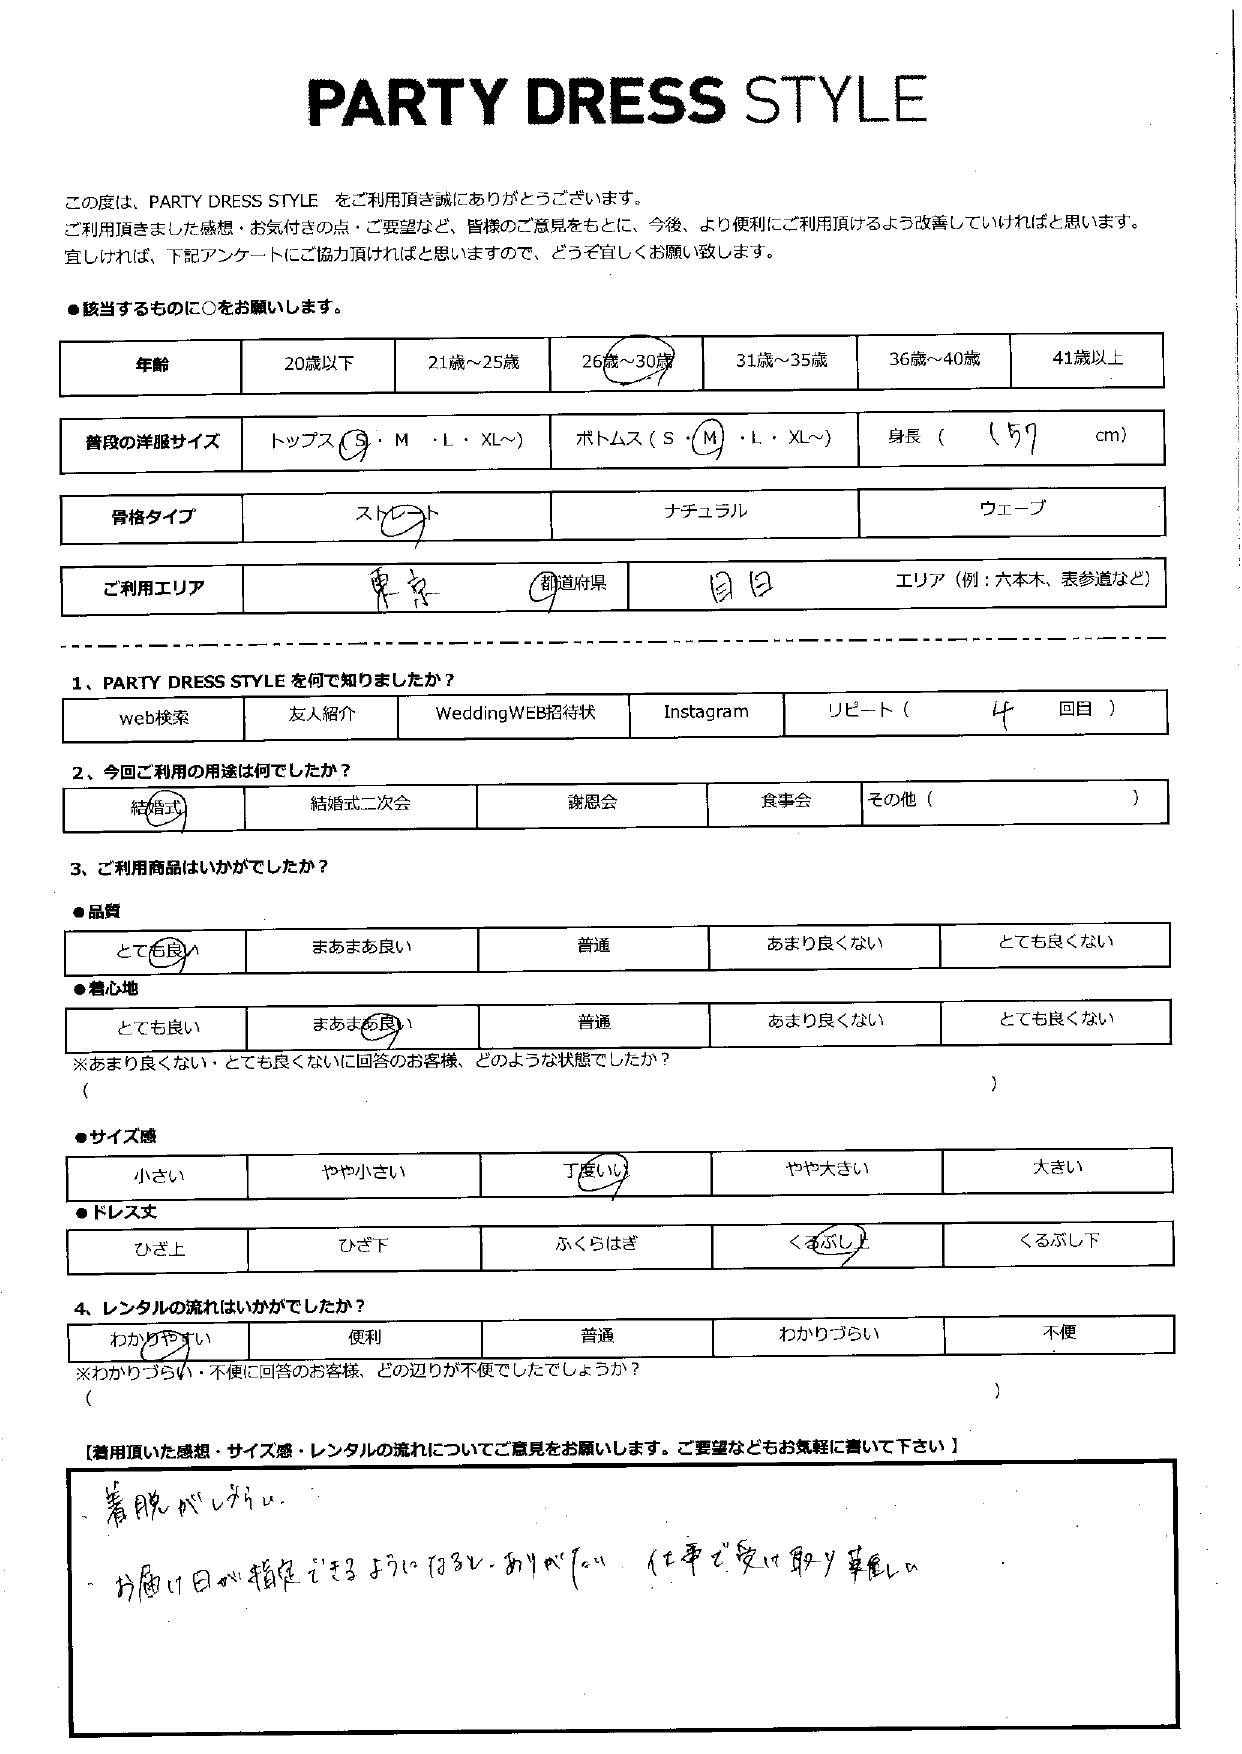 PARTY DRESS STYLE
この度は、PARTY DRESS STYLE をご利用頂き誠にありがとうございます。
ご利用頂きました感想・お気付きの点・ご要望など、皆様のご意見をもとに、今後、より便利にご利用頂けるよう改善していければと思います。
宜しければ、下記アンケートにご協力頂ければと思いますので、どうぞ宜しくお願い致します。
●該当するものに○をお願いします。
年齢 20歳以下 21歳～25歳 26歳～30歳 31歳～35歳 36歳～40歳 41歳以上
普段の洋服サイズ トップス( S ・ M ・L ・ XL～) ボトムス ( S ・ M ・L ・ XL～) 身長 ( 157 cm)
骨格タイプ ストレート ナチュラル ウェーブ
ご利用エリア 東京 都道府県 目白 エリア（例：六本木、表参道など）
1、PARTY DRESS STYLE を何で知りましたか？
web検索 友人紹介 WeddingWEB招待状 Instagram リピート ( 4 回目 )
2、今回ご利用の用途は何でしたか？
結婚式 結婚式二次会 謝恩会 食事会 その他 ( )
3、ご利用商品はいかがでしたか？
●品質
とても良い まあまあ良い 普通 あまり良くない とても良くない
●着心地
とても良い まあまあ良い 普通 あまり良くない とても良くない
※あまり良くない・とても良くないに回答のお客様、どのような状態でしたか？
( )
●サイズ感
小さい やや小さい 丁度いい やや大きい 大きい
●ドレス丈
ひざ上 ひざ下 ふくらはぎ くるぶし上 くるぶし下
4、レンタルの流れはいかがでしたか？
わかりやすい 便利 普通 わかりづらい 不便
※わかりづらい・不便に回答のお客様、どの辺りが不便でしたでしょうか？
( )
【着用頂いた感想・サイズ感・レンタルの流れについてご意見をお願いします。ご要望などもお気軽に書いて下さい 】
・着脱がしづらい.
・お届け日が指定できるようになると、ありがたい 仕事で受け取り難しい